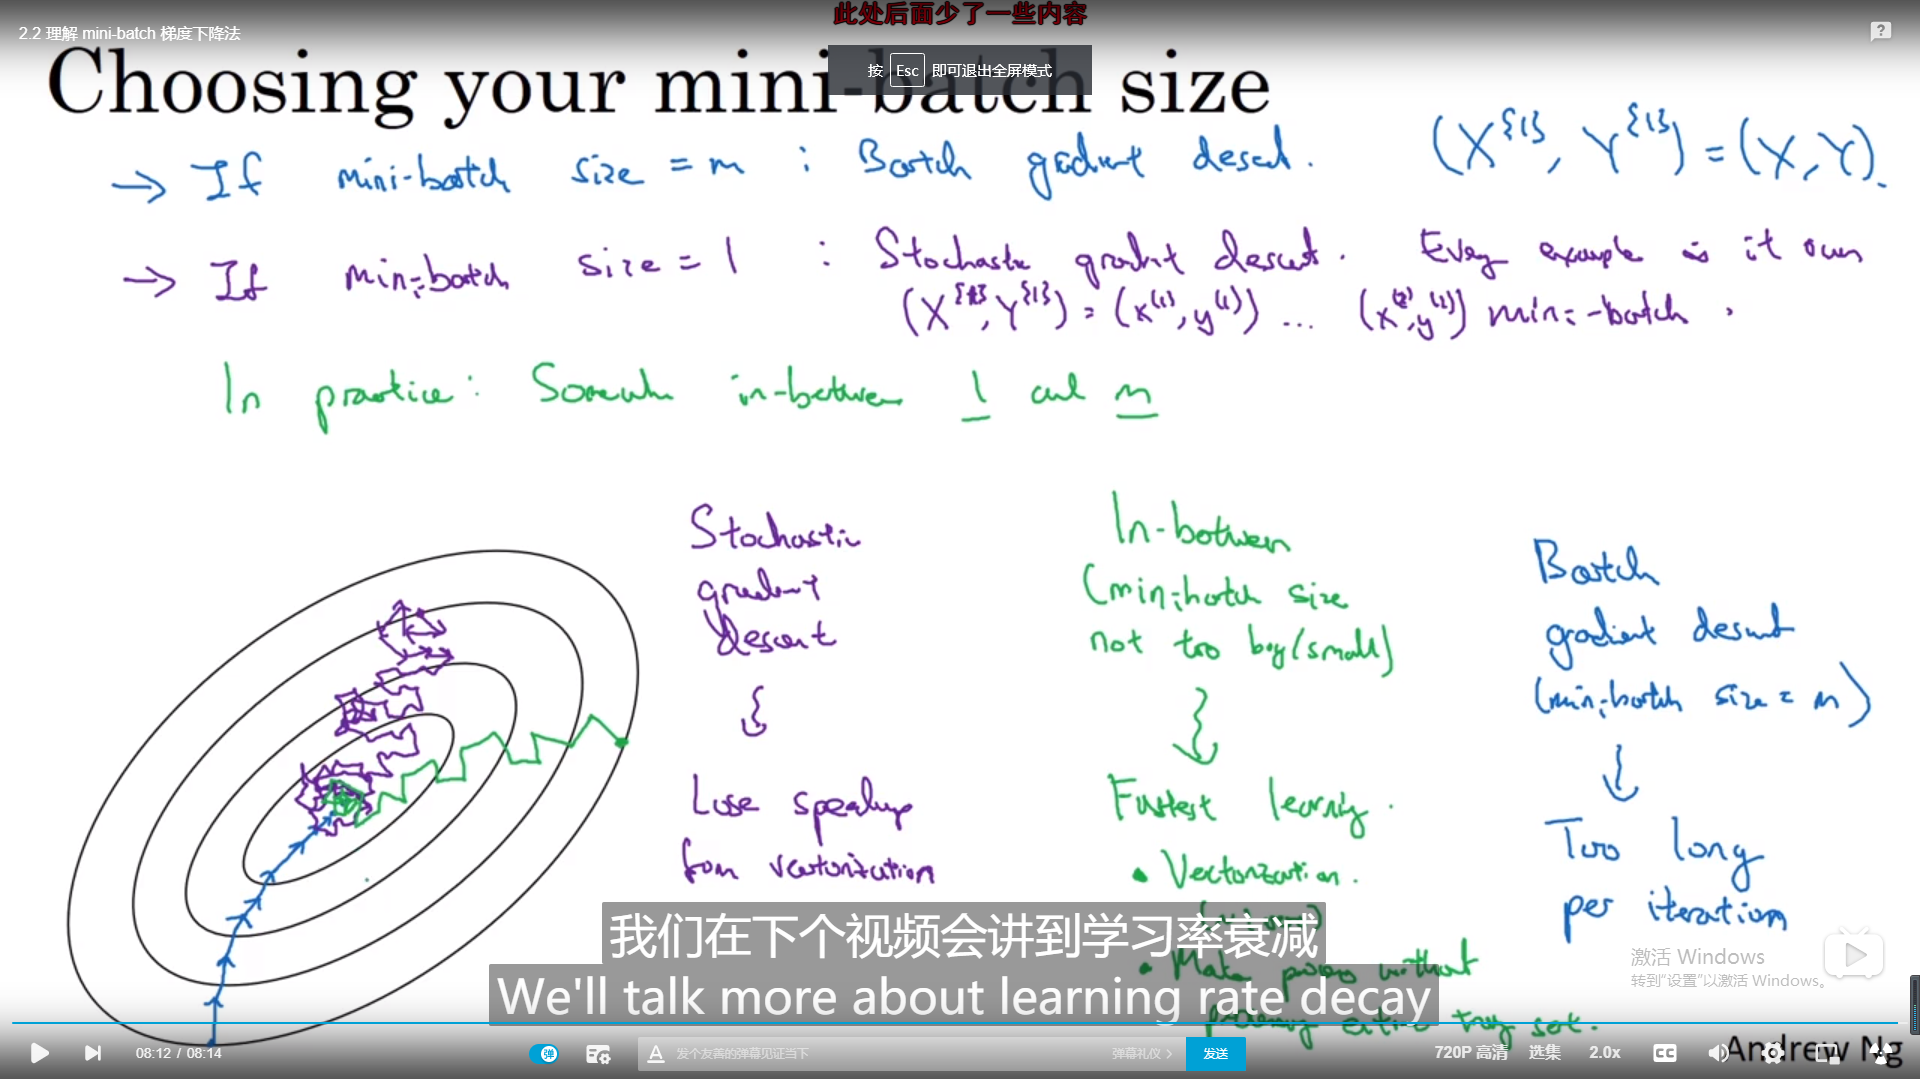 此处后面少了一些内容
2.2 理解 mini-batch 梯度下降法
按 Esc 即可退出全屏模式
Choosing your mini-batch size
→ If mini-batch size = m : Batch gradient descent. (X^{1}, Y^{1}) = (X, Y).
→ If mini-batch size = 1 : Stochastic gradient descent. Every example is it own
(X^{1}, Y^{1}) = (x^(1), y^(1)) ... (x^(2), y^(2)) mini-batch.
In practice: Somewhere in-between 1 and m
Stochastic
gradient
descent
Lose speedup
from vectorization
In-between
(mini-batch size
not too big/small)
Fastest learning.
• Vectorization.
• Make progress without
processing entire training set.
Batch
gradient descent
(mini-batch size = m)
Too long
per iteration
我们在下个视频会讲到学习率衰减
We'll talk more about learning rate decay
激活 Windows
转到“设置”以激活 Windows。
08:12 / 08:14
弹
A 发个友善的弹幕见证当下
弹幕礼仪 >
发送
720P 高清
选集
2.0x
CC
Andrew Ng